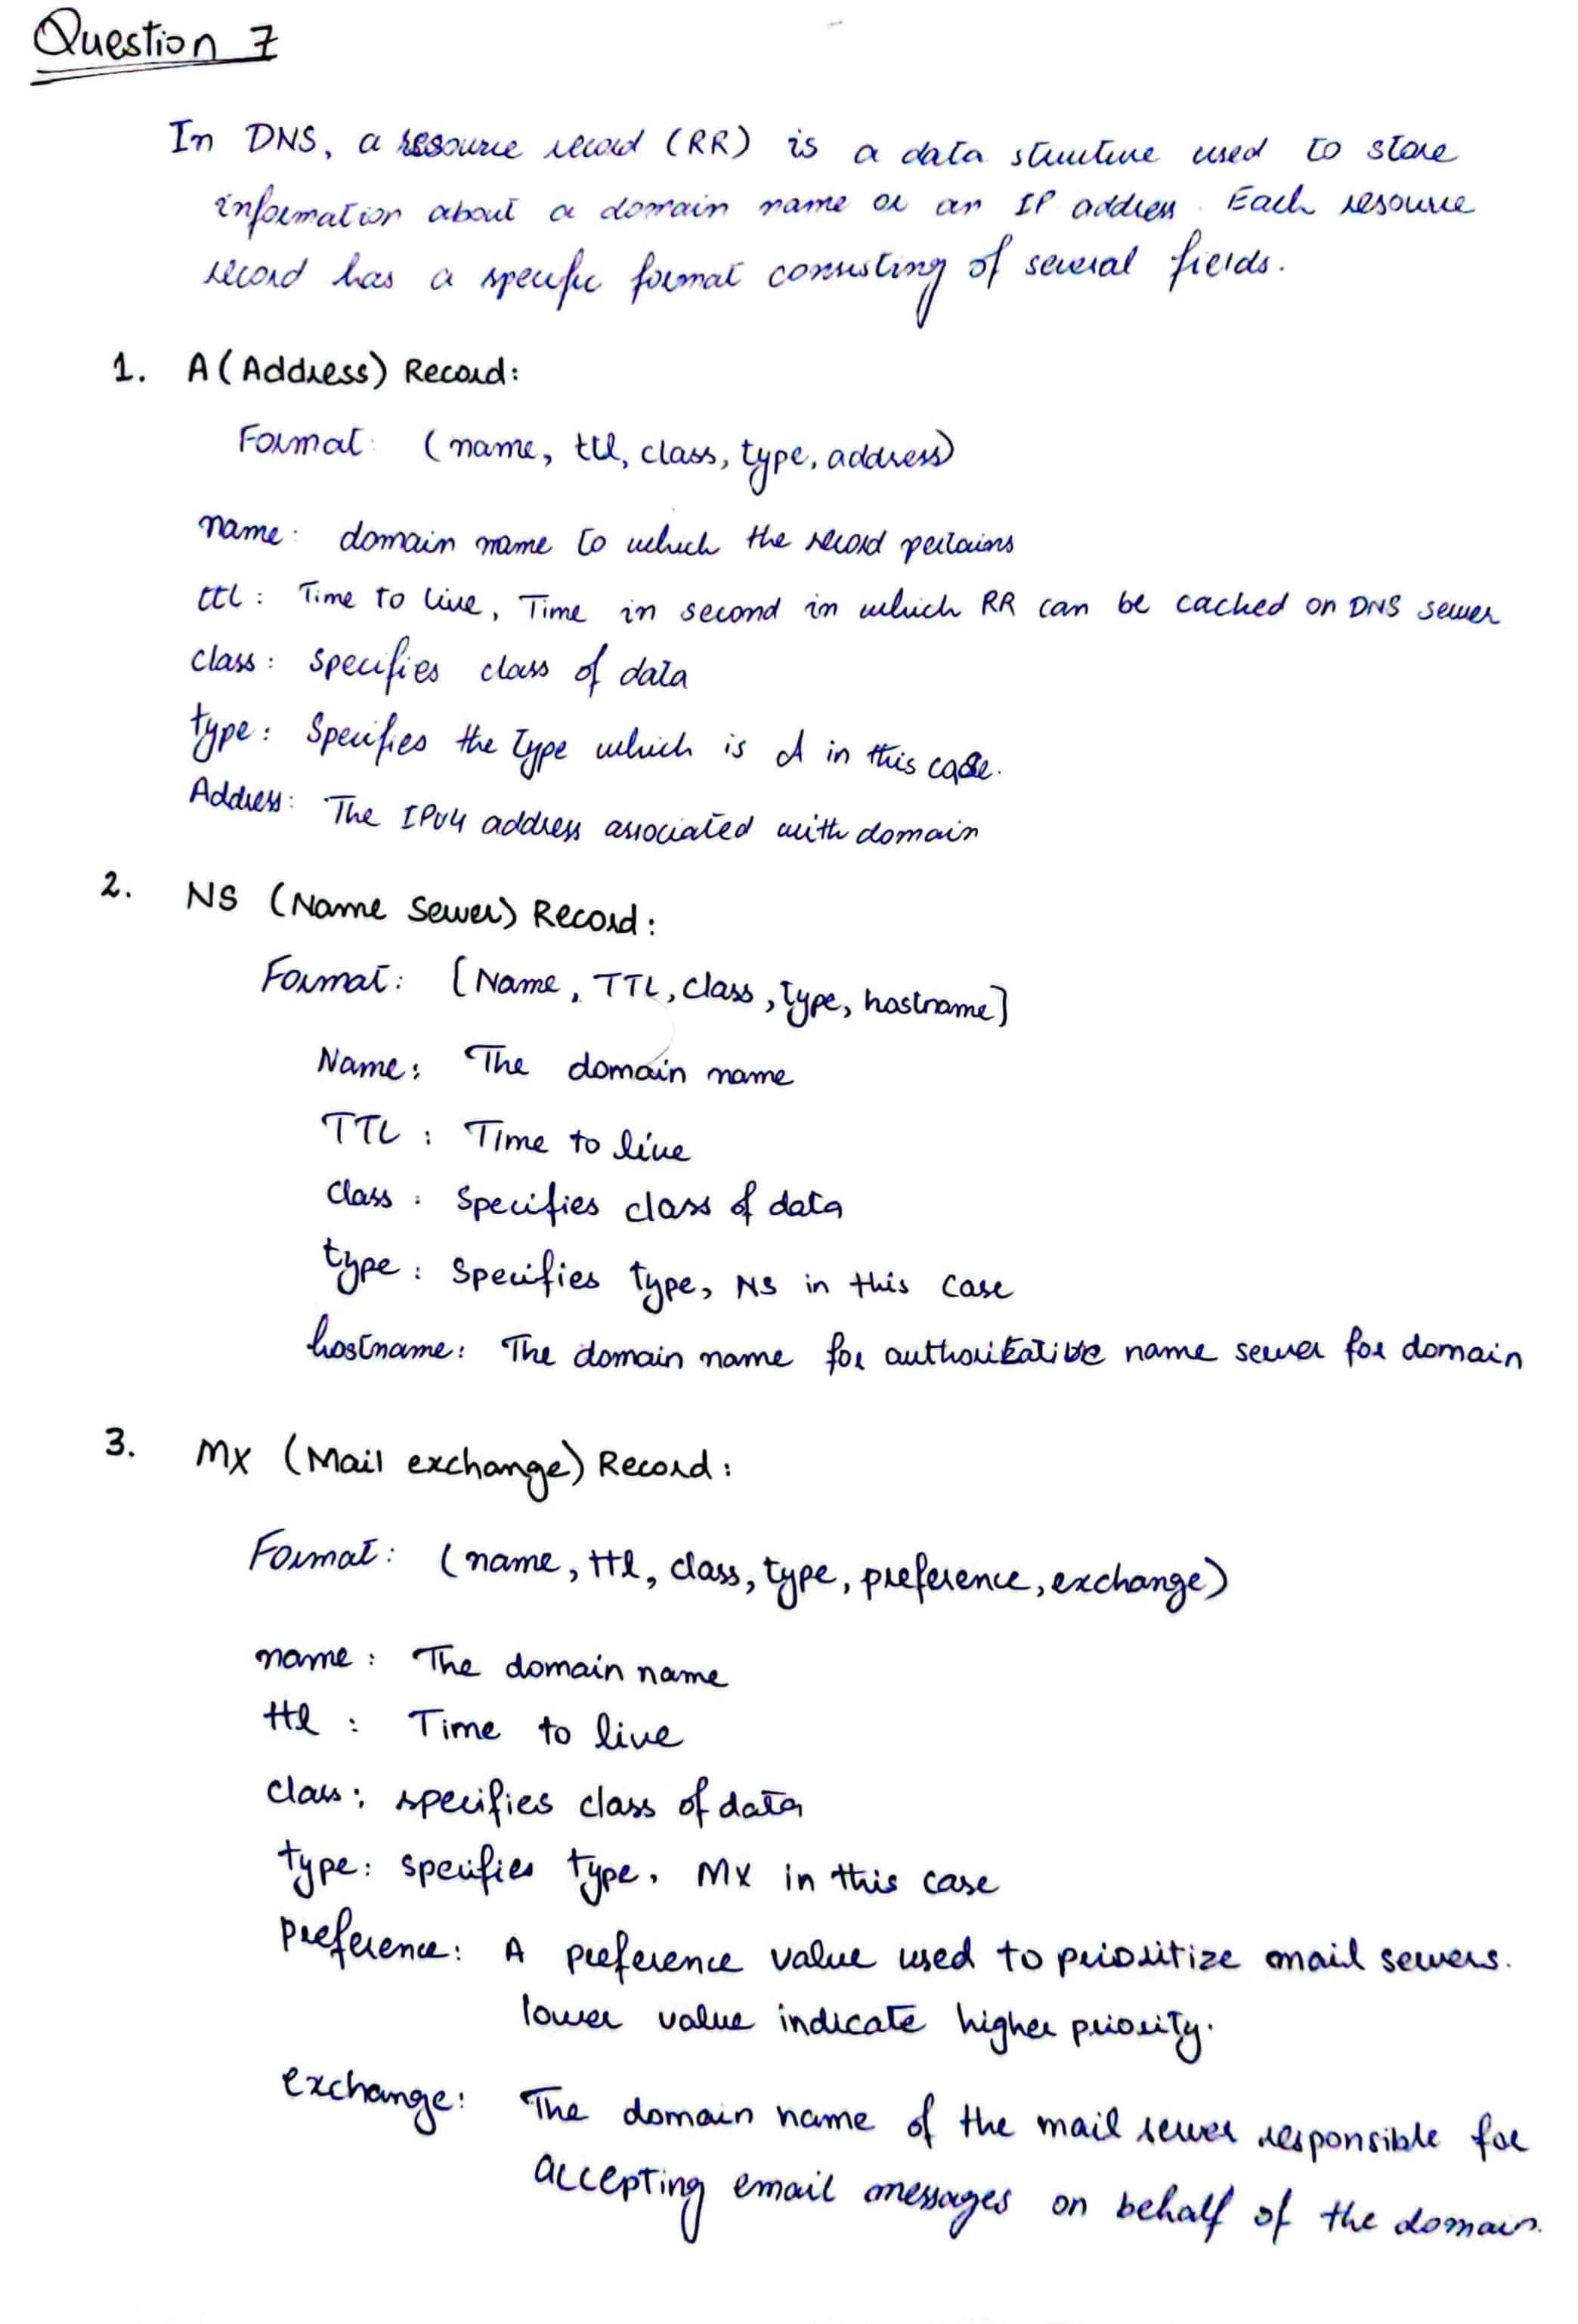 Question 7
In DNS, a resource record (RR) is a data structure used to store
information about a domain name or an IP address. Each resource
record has a specific format consisting of several fields.
1. A (Address) Record:
Format: (name, ttl, class, type, address)
name: domain name to which the record pertains
ttl: Time to live, Time in second in which RR can be cached on DNS server
class: specifies class of data
type: Specifies the type which is A in this case.
Address: The IPv4 address associated with domain
2. NS (Name Server) Record:
Format: [Name, TTL, class, type, hostname]
Name: The domain name
TTL: Time to live
class: specifies class of data
type: specifies type, NS in this case
hostname: The domain name for authoritative name server for domain
3. MX (Mail exchange) Record:
Format: (name, ttl, class, type, preference, exchange)
name: The domain name
ttl: Time to live
class: specifies class of data
type: specifies type. MX in this case
preference: A preference value used to prioritize mail servers.
lower value indicate higher priority.
exchange: The domain name of the mail server responsible for
accepting email messages on behalf of the domain.